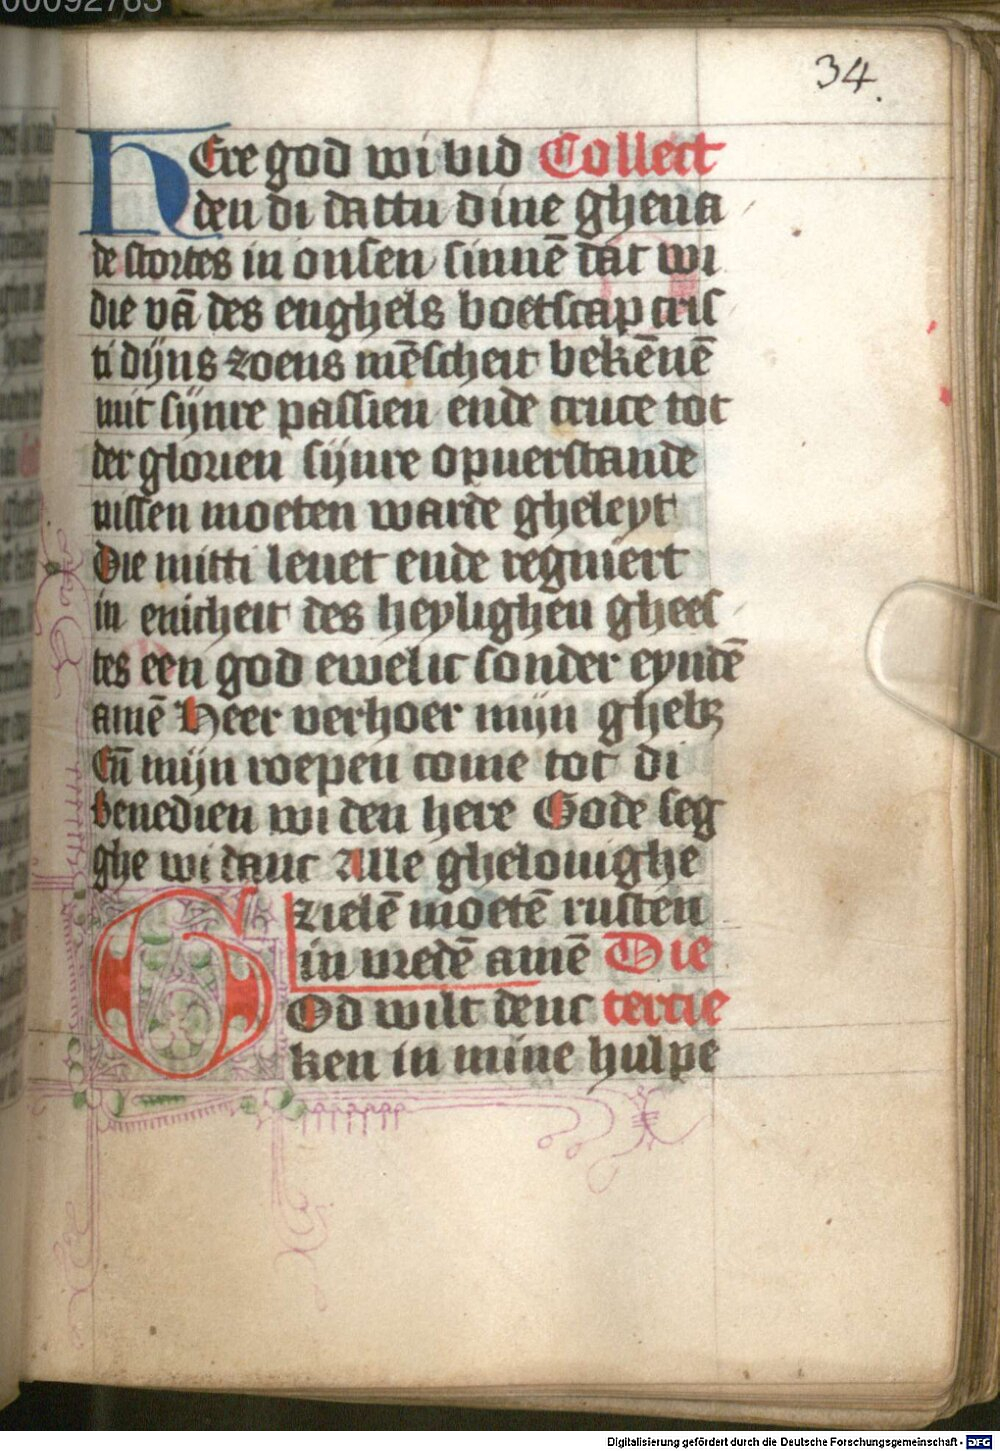 00092763
34.
HEre god wi bid Collect
den di dattu dine ghena
de stortes in onsen sinnē dat wi
die vā des enghels boetscap cris
ti dijns zoens mēscheit bekēnē
mit sijnre passien ende cruce tot
der glorien sijnre opuerstande
nissen moeten warde gheleyt
Die mitti leuet ende regniert
in enicheit des heylighen ghees
tes een god ewelic sonder eyndē
amē Heer verhoer mijn ghebz
Eñ mijn roepen come tot di
benedien wi den here Gode seg
ghe wi danc Alle ghelouighe
zielē moetē rusten
in vredē amē Die
GOd wilt denc tercie
ken in mine hulpe
Digitalisierung gefördert durch die Deutsche Forschungsgemeinschaft - DFG